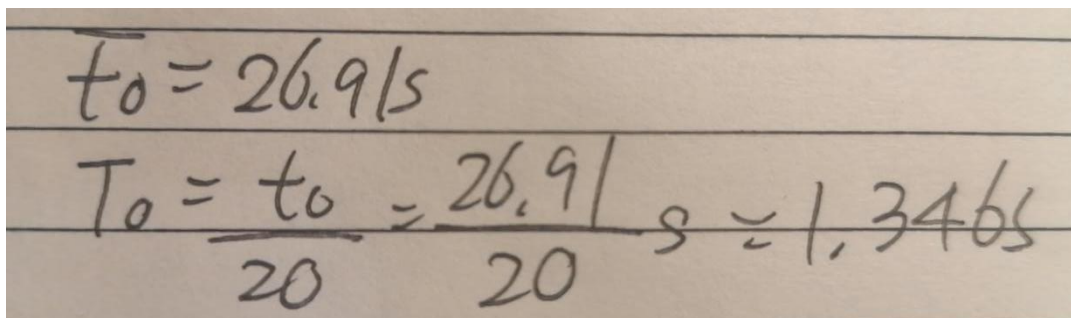 t̅₀ = 26.91s
T₀ = t₀/20 = 26.91/20 s ≈ 1.346s